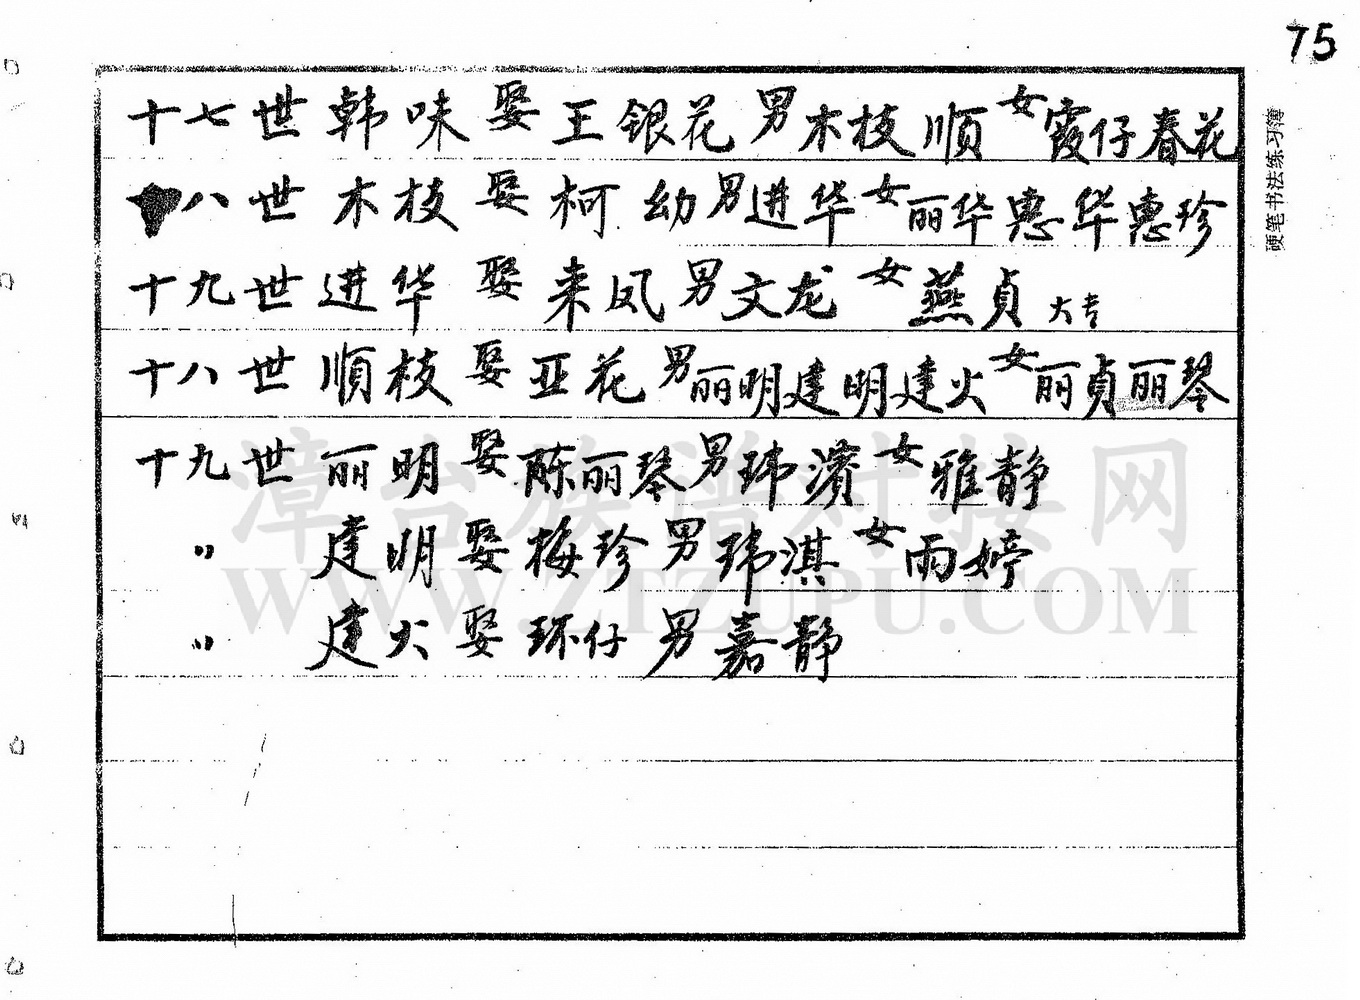 75
十七世 韩味 娶 王银花 男 木枝 顺 女 霞仔 春花
八世 木枝 娶 柯幼 男 进华 女 丽华 惠华 惠珍
十九世 进华 娶 来凤 男 文龙 女 燕贞 大专
十八世 顺枝 娶 亚花 男 丽明 建明 建火 女 丽贞 丽琴
十九世 丽明 娶 陈丽琴 男 玮濱 女 雅静
〃 建明 娶 梅珍 男 玮淇 女 雨婷
〃 建火 娶 环仔 男 嘉静
硬笔书法练习薄
漳台族谱对接网
WWW.ZTZUPU.COM